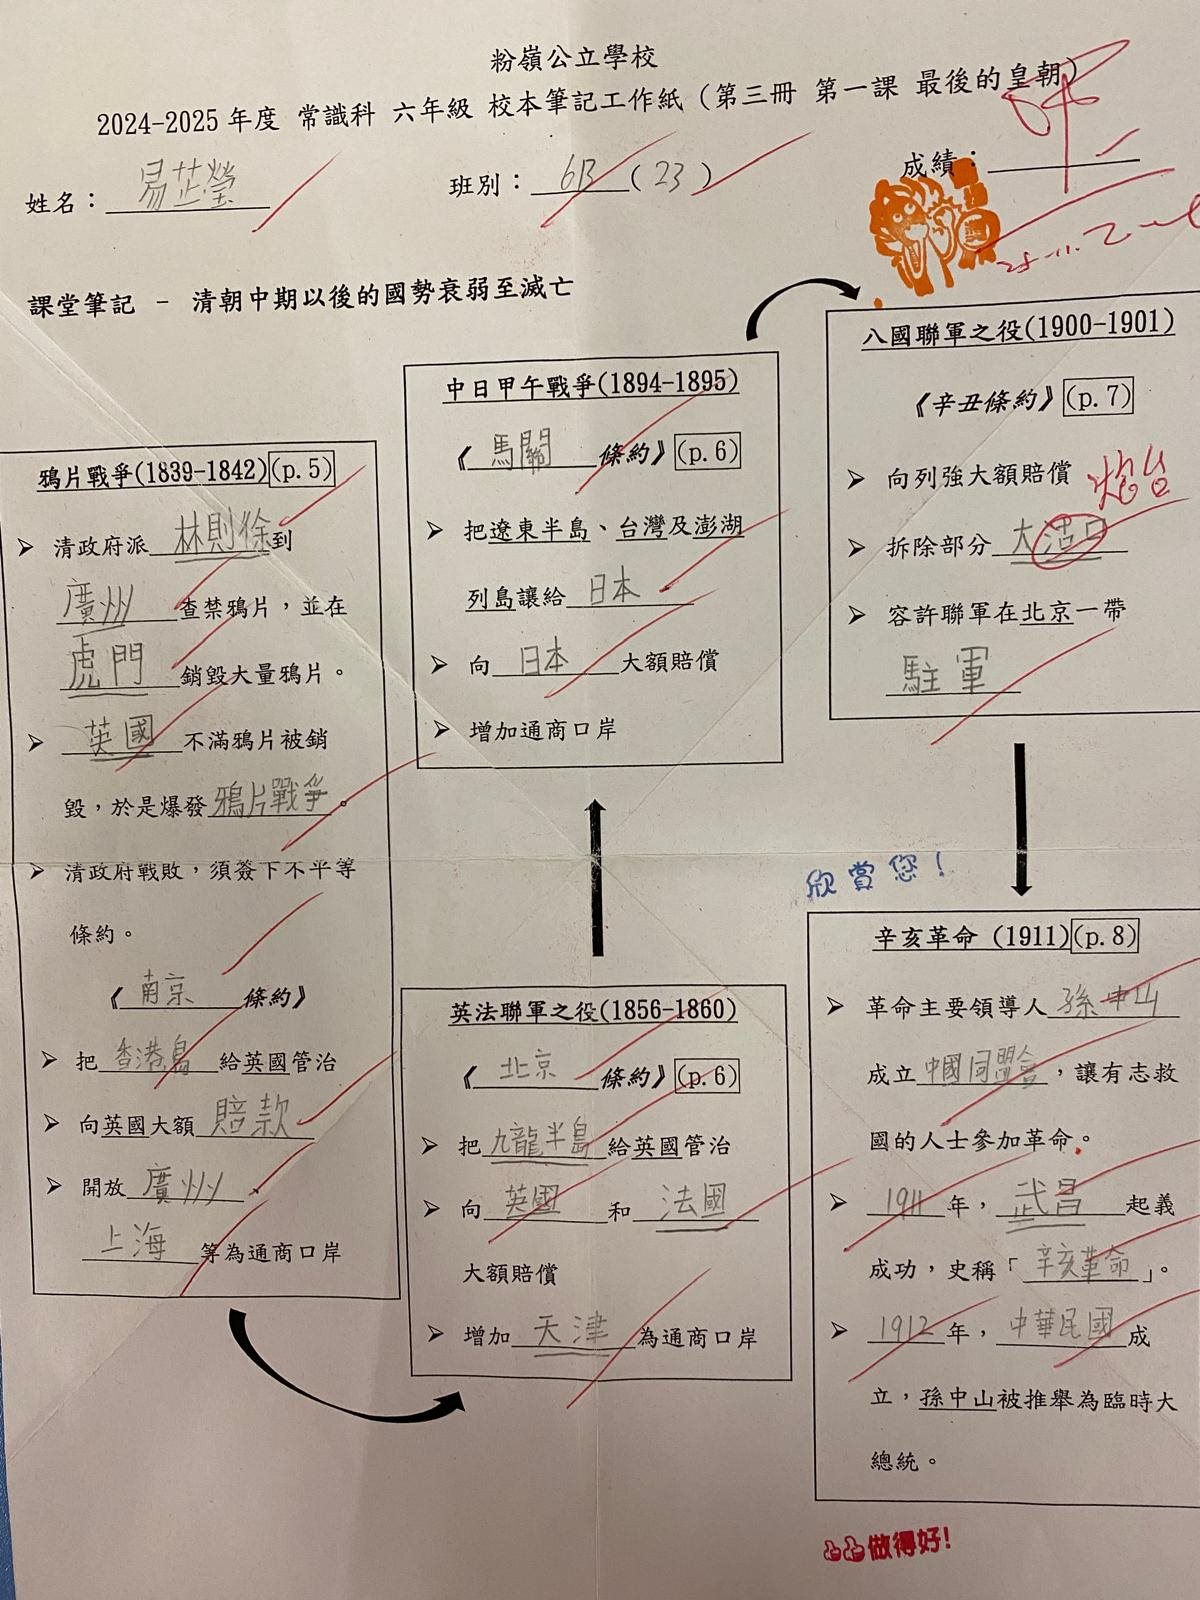 粉嶺公立學校
2024-2025 年度 常識科 六年級 校本筆記工作紙 (第三冊 第一課 最後的皇朝)
姓名：易芷瑩 班別：6B (23) 成績：
課堂筆記 - 清朝中期以後的國勢衰弱至滅亡
鴉片戰爭(1839-1842)(p.5)
➢ 清政府派林則徐到
廣州查禁鴉片，並在
虎門銷毀大量鴉片。
➢ 英國不滿鴉片被銷
毀，於是爆發鴉片戰爭。
➢ 清政府戰敗，須簽下不平等
條約。
《南京條約》
➢ 把香港島給英國管治
➢ 向英國大額賠款
➢ 開放廣州、
上海等為通商口岸
英法聯軍之役(1856-1860)
《北京條約》(p.6)
➢ 把九龍半島給英國管治
➢ 向英國和法國
大額賠償
➢ 增加天津為通商口岸
中日甲午戰爭(1894-1895)
《馬關條約》(p.6)
➢ 把遼東半島、台灣及澎湖
列島讓給日本
➢ 向日本大額賠償
➢ 增加通商口岸
八國聯軍之役(1900-1901)
《辛丑條約》(p.7)
➢ 向列強大額賠償
炮台
➢ 拆除部分大沽口
➢ 容許聯軍在北京一帶
駐軍
欣賞您！
辛亥革命 (1911)(p.8)
➢ 革命主要領導人孫中山
成立中國同盟會，讓有志救
國的人士參加革命。
➢ 1911年，武昌起義
成功，史稱「辛亥革命」。
➢ 1912年，中華民國成
立，孫中山被推舉為臨時大
總統。
做得好!